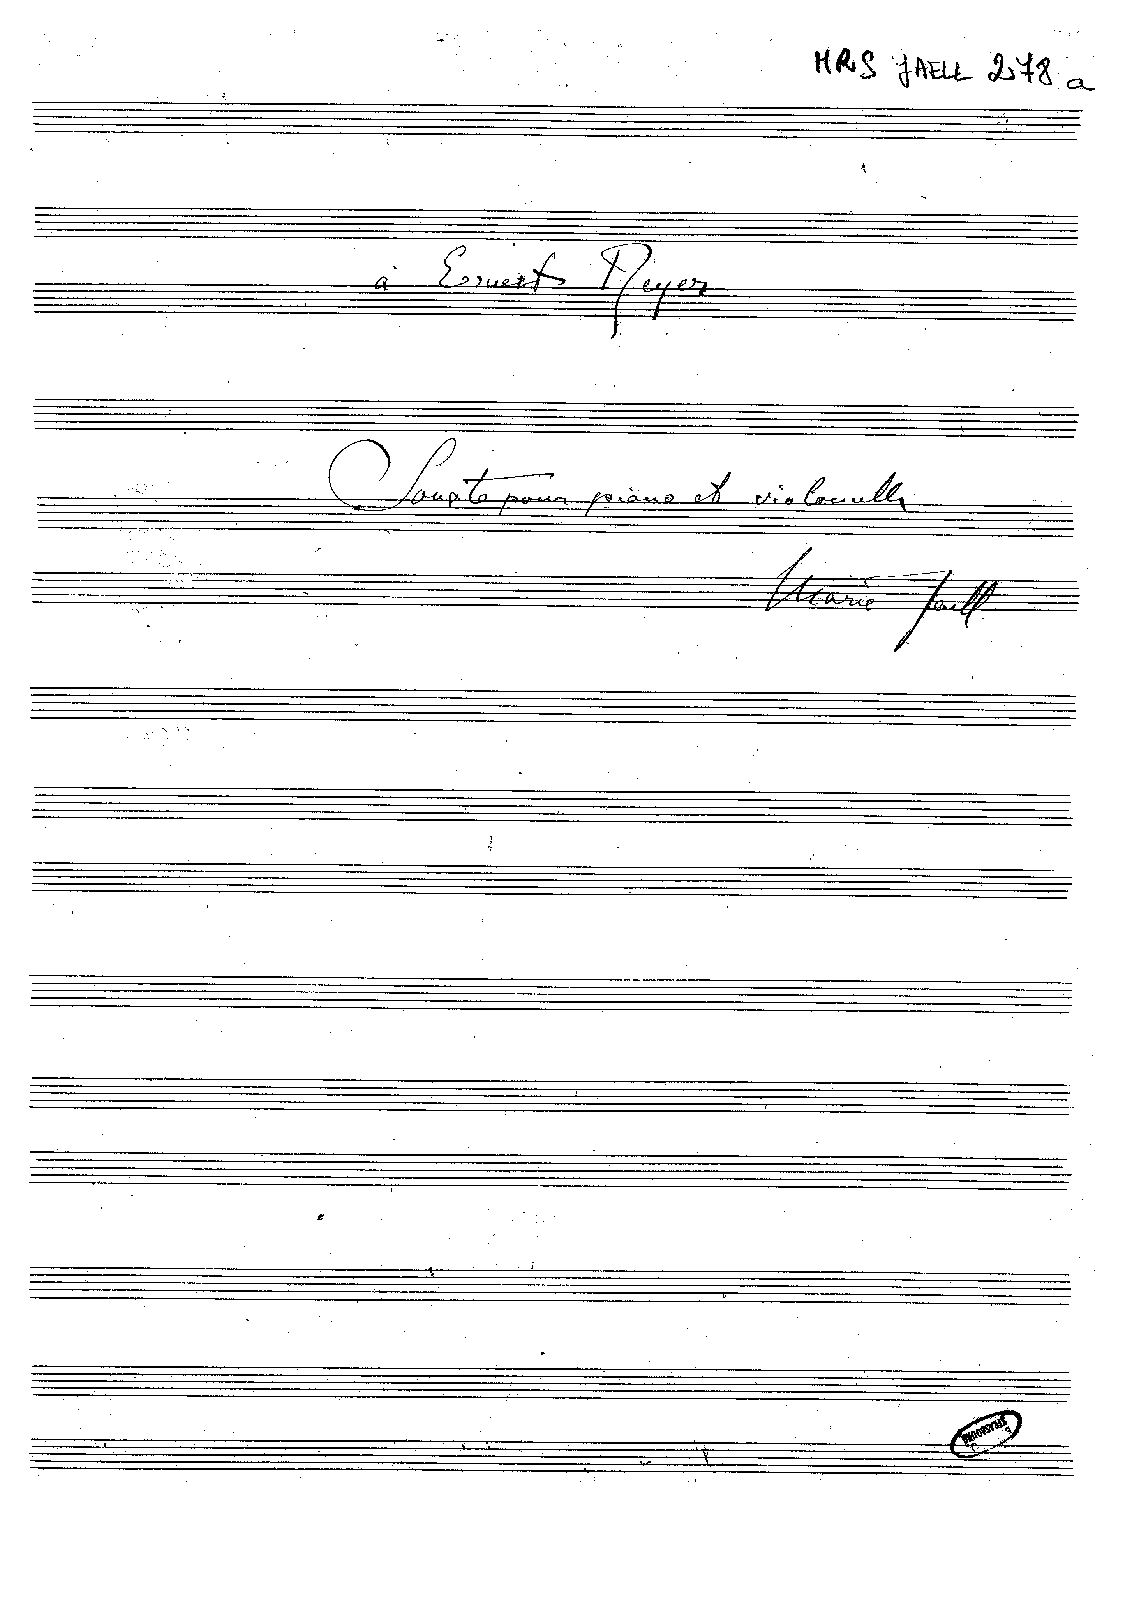 MRS JAELL 278 a
à Ernest Reyer
Sonate pour piano et violoncelle
Marie Jaell
STRASBOURG